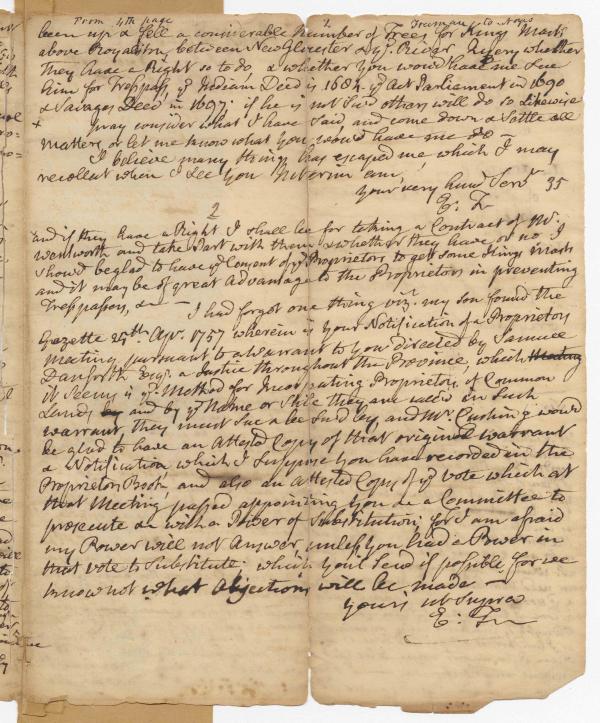 From 4th page 2 Freeman to Noyes
been up & fell a considerable Number of Trees for Kings Masts
above Royalston, between New Glocester & ye. River. Query whether
they have a Right so to do, & whether you would have me Sue
him for Trespass, ye Indian Deed is 1684 ye Act Parliament in 1690
& Savages Deed in 1697; if he is not Sued others will do so Likewise
+ pray consider what I have Said and come down & Settle all
matters, or let me know what you would have me do —
I believe many things has escaped me, which I may
recollect when I See you Interim am,
Your very hum. Serv. 35
E: F
2
and if they have a Right I shall be for taking a Contract of Mr.
Wentworth and take Part with them & whether they have or no I
shou'd be glad to have ye Consent of ye Proprietors to get some Kings Masts
and it may be of great Advantage to the Proprietors in preventing
Trespasses, &c — I had forgot one thing viz. my son found the
Gazette 25th Apr. 1757 wherein is your Notification of a Proprietors
Meeting pursuant to a Warrant to you Directed by Samuel
Danforth Esqr. a Justice throughout the Province, which
it Seems is ye Method for Incorporating Proprietors of Common
Lands and by ye Name or Stile they are called in Such
warrant, they must Sue & be Sued by, and Mr. Cushing would
be glad to have an Attested Copy of that original warrant
& Notification which I Suppose you have recorded in the
Proprietors Book, and also an Attested Copy of ye vote which at
that Meeting passed appointing you &c a Committee to
prosecute &c with a Power of Substitution; for I am afraid
my Power will not Answer unless you had a Power in
that vote to Substitute; which you'l Send if possible for we
know not what Objections will be made —
Yours ut Supra
E: F